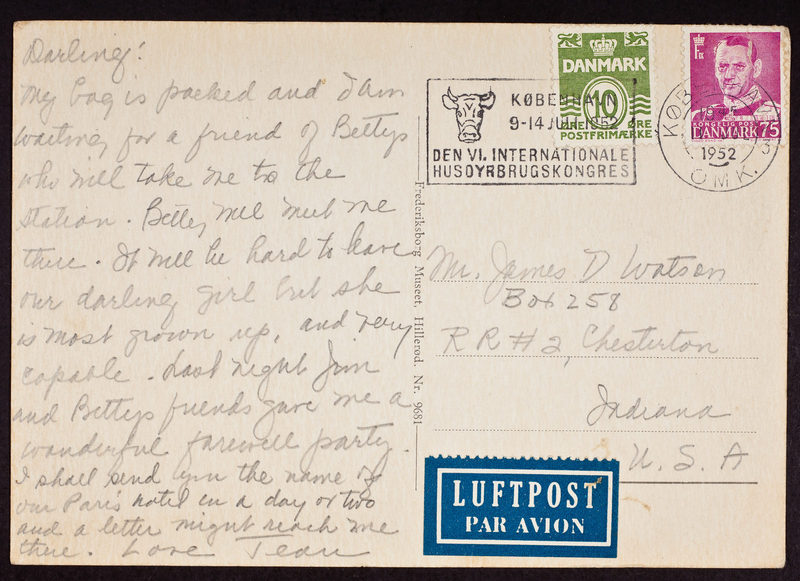 Darling:
My bag is packed and I am
waiting for a friend of Bettys
who will take me to the
station. Betty will meet me
there. It will be hard to leave
our darling girl but she
is most grown up, and very
capable. Last night Jim
and Bettys friends gave me a
wonderful farewell party.
I shall send you the name of
our Paris hotel in a day or two
and a letter might reach me
there. Love Jean
Frederiksborg Museet, Hillerød. Nr. 9681
KØBENHAVN
9-14 JULI 1952
DEN VI. INTERNATIONALE
HUSDYRBRUGSKONGRES
DANMARK
10
POSTFRIMÆRKE
KONGELIG POST
DANMARK 75
1952
OMK.
Mr. James D Watson
Box 258
RR #2, Chesterton
Indiana
U. S. A
LUFTPOST
PAR AVION